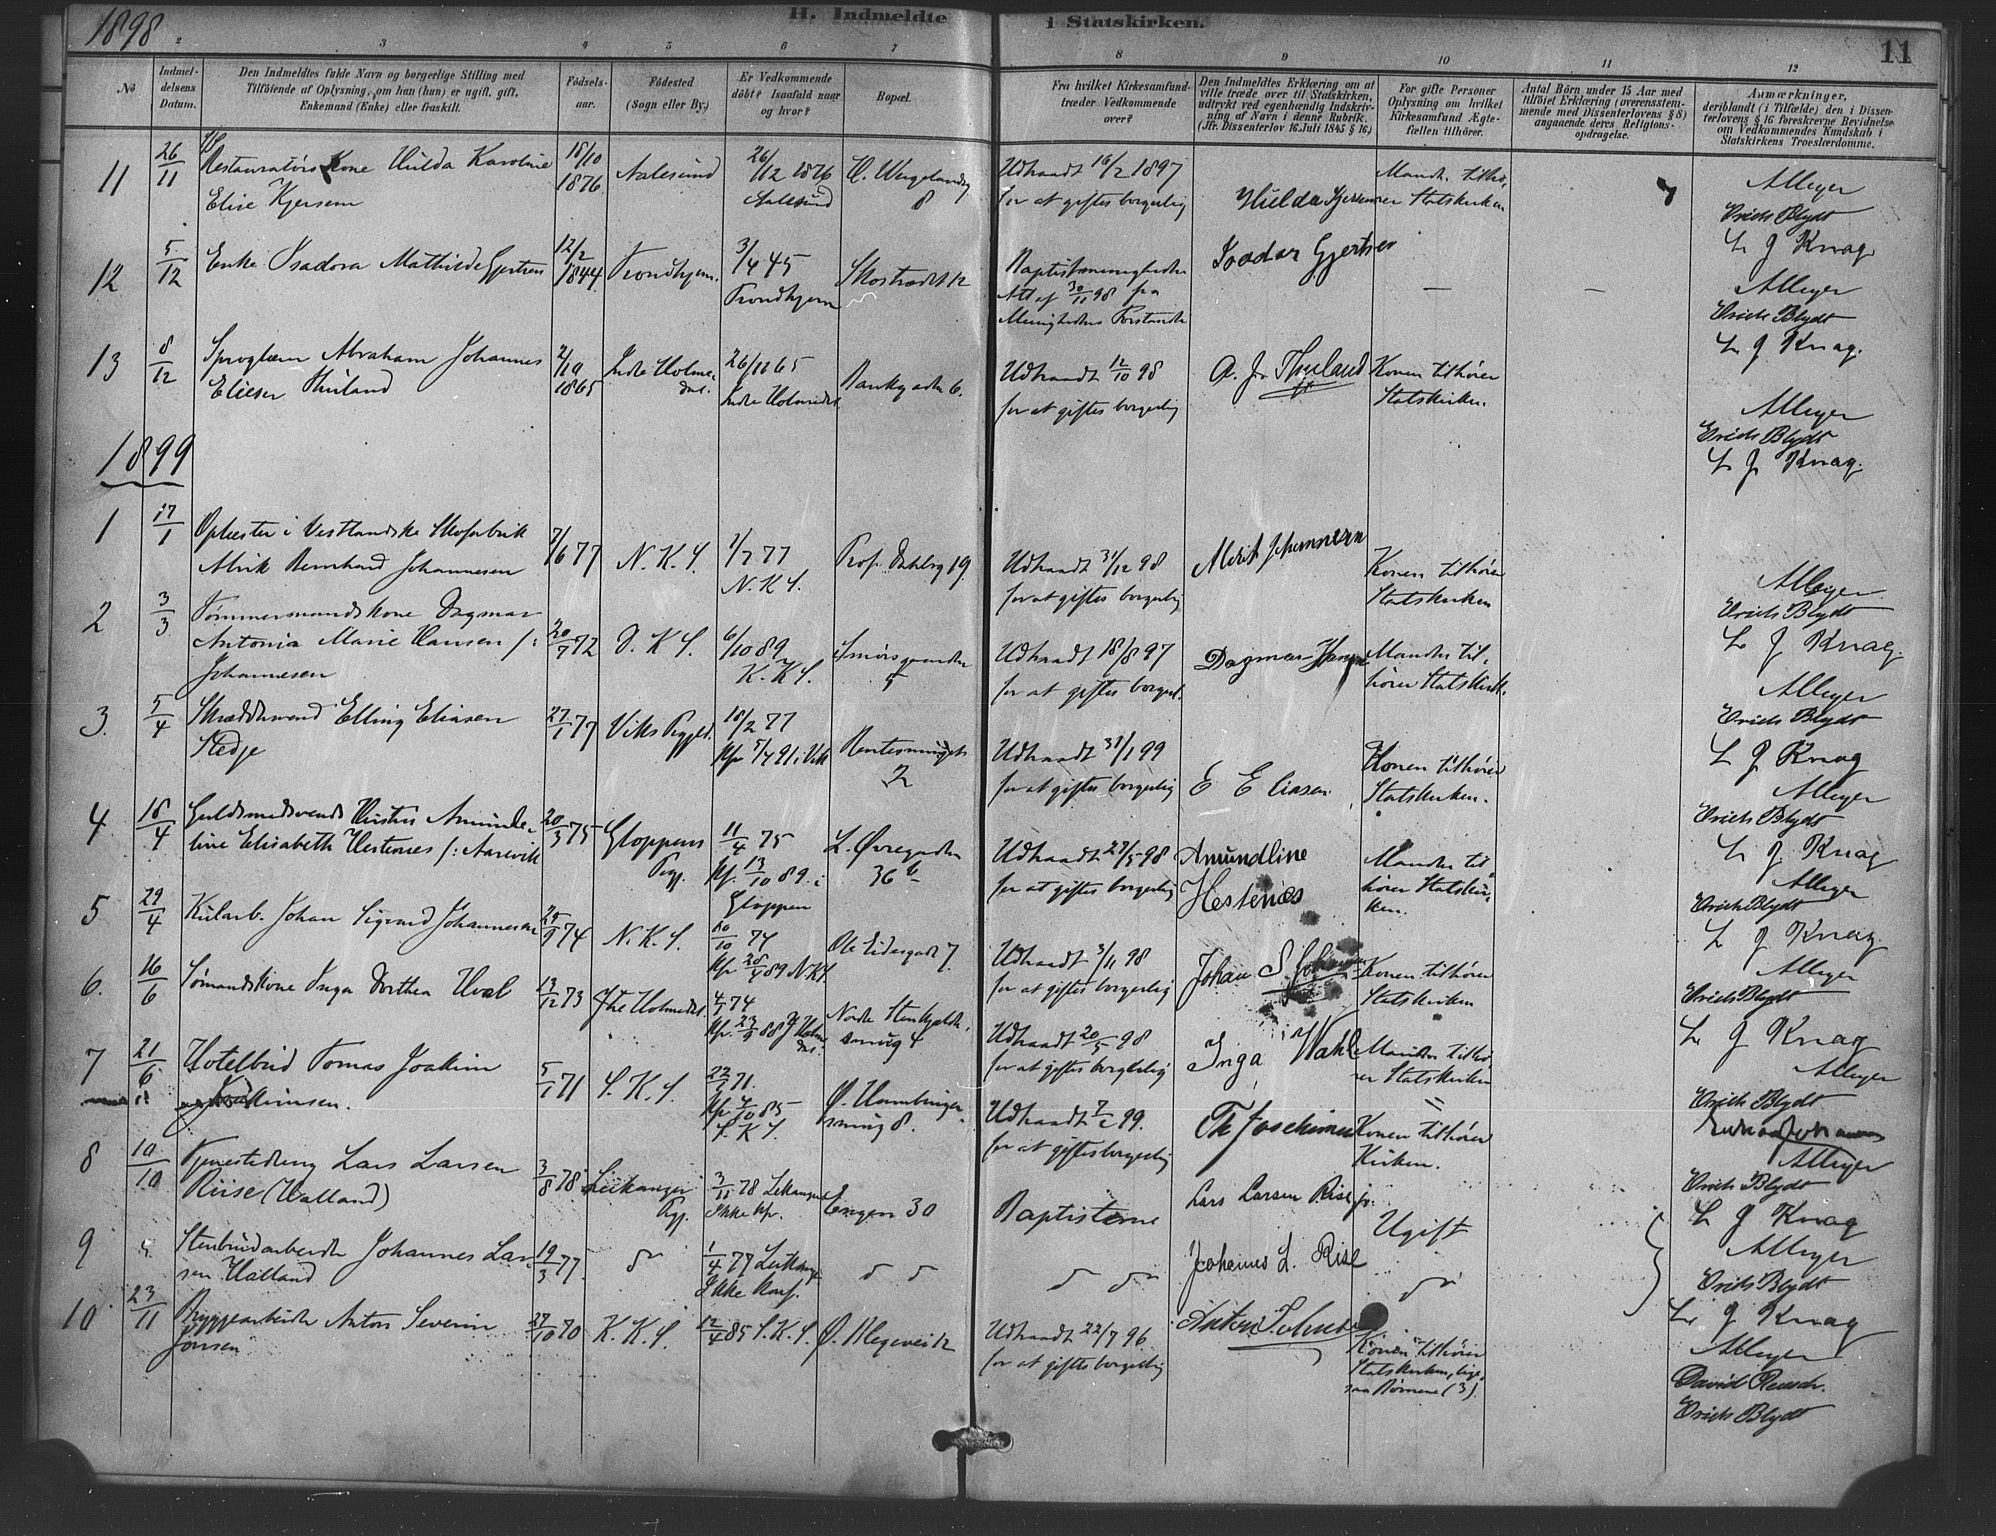 1898
H. Indmeldte i Statskirken.
11
2 3 4 5 6 7 8 9 10 11 12
No
Indmel-
delsens
Datum.
Den Indmeldtes fulde Navn og borgerlige Stilling med
Tilföiende af Oplysning, om han (hun) er ugift, gift,
Enkemand (Enke) eller fraskilt.
Födsels-
aar.
Födested
(Sogn eller By.)
Er Vedkommende
döbt? Isaafald naar
og hvor?
Bopæl.
Fra hvilket Kirkesamfund
træder Vedkommende
over?
Den Indmeldtes Erklæring om at
ville træde over til Statskirken,
udtrykt ved egenhændig Indskriv-
ning af Navn i denne Rubrik.
(Jfr. Dissenterlov 16. Juli 1845 § 16.)
For gifte Personer
Oplysning om hvilket
Kirkesamfund Ægte-
fællen tilhörer.
Antal Börn under 15 Aar med
tilföiet Erklæring (overensstem-
mende med Dissenterlovens § 8)
angaaende deres Religions-
opdragelse.
Anmærkninger,
deriblandt (i Tilfælde) den i Dissen-
terlovens § 16 foreskrevne Bevidnelse
om Vedkommendes Kundskab i
Statskirkens Troeslærdomme.
11 26/11
Restauratörs Kone Hilda Karoline
Elise Kjersem
18/10
1876
Aalesund
26/12 1876
Aalesund
8
Udtraadt 16/2 1897
for at giftes borgerlig
Hulda Kjersem
Manden tilhö-
rer Statskirken
Alleyer
Erich Blydt
L J Knag
12 5/12
Enke Isadora Mathilde Gjertsen
12/2
1844
Trondhjem.
3/4 45
Trondhjem
Skostrædet 12
Baptistmenigheden
Att af 30/11 98 fra
Menighedens Forstander
Isadora Gjertsen
—
—
Alleyer
Erich Blydt
L J Knag.
13 8/12
Sproglærer Abraham Johannes
Elieser Thuland
2/10
1865
Indre Holme-
dal.
26/11 65
Indre Holmedal
6.
Udtraadt 12/10 98
for at giftes borgerlig
A. J. Thuland
Konen tilhörer
Statskirken.
Alleyer
Erich Blydt
L J Knag.
1899
1 17/1
i Vestlandske Skofabrik
Alrik Bernhard Johannesen
7/6 77
N. K. S.
1/7 77
N. K. S.
Prof. Dahlsg 19.
Udtraadt 31/12 98
for at giftes borgerlig
Konen tilhörer
Statskirken
Alleyer
Erich Blydt
L J Knag.
2 3/3
Tömmermandskone Dagmar
Antonia Marie Hansen f:
Johannesen
20/7 72
D. K. S.
6/10 89
K. K. S.
5
Udtraadt 18/8 97
for at giftes borgerl.
Dagmar Hansen
Manden til-
hörer Statskirk.
Alleyer
Erich Blydt
L J Knag
3. 5/4
Skræddersvend Elling Eliasen
Stedje
27/1 77
Viks Prgjld.
18/2 77
Kf 5/4 91 i Vik
2
Udtraadt 31/1 99
for at giftes borgerlig
E Eliasen
Konen tilhörer
Statskirken.
Alleyer
Erich Blydt
L J Knag
4 18/4
Guldsmedsvends Hustru Amunde-
line Elisabeth Hestenes f: Aarevik
20/3 75
Gloppens
Prgj.
11/4 75
Kf. 13/10 89. i
Gloppen
L. Øvregaden
36 b
Udtraadt 27/5 98
for at giftes borgerlig
Amundline
Hestenæs
Manden til-
hörer Statskir-
ken.
Alleyer
Erich Blydt
L J Knag
5 29/4
Kularb. Johan Sigvard Johannesen
25/9 74
N. K. S.
20/10 74
Kf. 28/4 89 N.K.S.
7.
Udtraadt 3/11 98
for at giftes borgerlig
Johan S Johannesen
Konen tilhörer
Statskirken
Alleyer
Erich Blydt
L J Knag
6. 16/6
Sömandskone Inga Dorthea Hval
13/12 73
Holmedal.
4/1 74
Nordre Stenkjelder-
smug 4
Udtraadt 20/5 98
for at giftes borgerlig
Inga Wahl
Manden tilhö-
rer Statskirken
Alleyer
Erich Blydt
7 21/6
Hotelbud Tomas Joakim
Joakimsen.
5/1 71
S. K. S.
22/1 71.
Kf 4/10 85
S. K. S.
Ø. Hamburger-
smug 8.
Udtraadt 7/2 99.
for at giftes borgerlig
Th Joachimsen
Konen tilhörer
Kirken.
Alleyer
Erich Blydt
L J Knag
8 10/10
Tjenestedreng Lars Larsen
Riise (Halland)
3/8 78
Leikanger
Prgj.
3/11 78 Leikanger
Ikke kf.
Engen 30
Baptisterne
Lars Larsen Rise jr.
Ugift
Alleyer
Erich Blydt
9
Stenbrudarbeider Johannes Lar-
sen Halland
19/3 77.
1/4 77 Leikanger
Ikke Konf.
Johannes L. Rise
L J Knag
10 23/11
Bryggearbeider Anton Severin
Jonsen
27/10 70
K. K. S.
12/4 85 S. K. S.
Ø. Blegevei 12
Udtraadt 22/7 96
for at giftes borgerlig
Konen tilhörer
Statskirken, lige-
saa Börnene (3).
Alleyer
David Reusch.
Erich Blydt